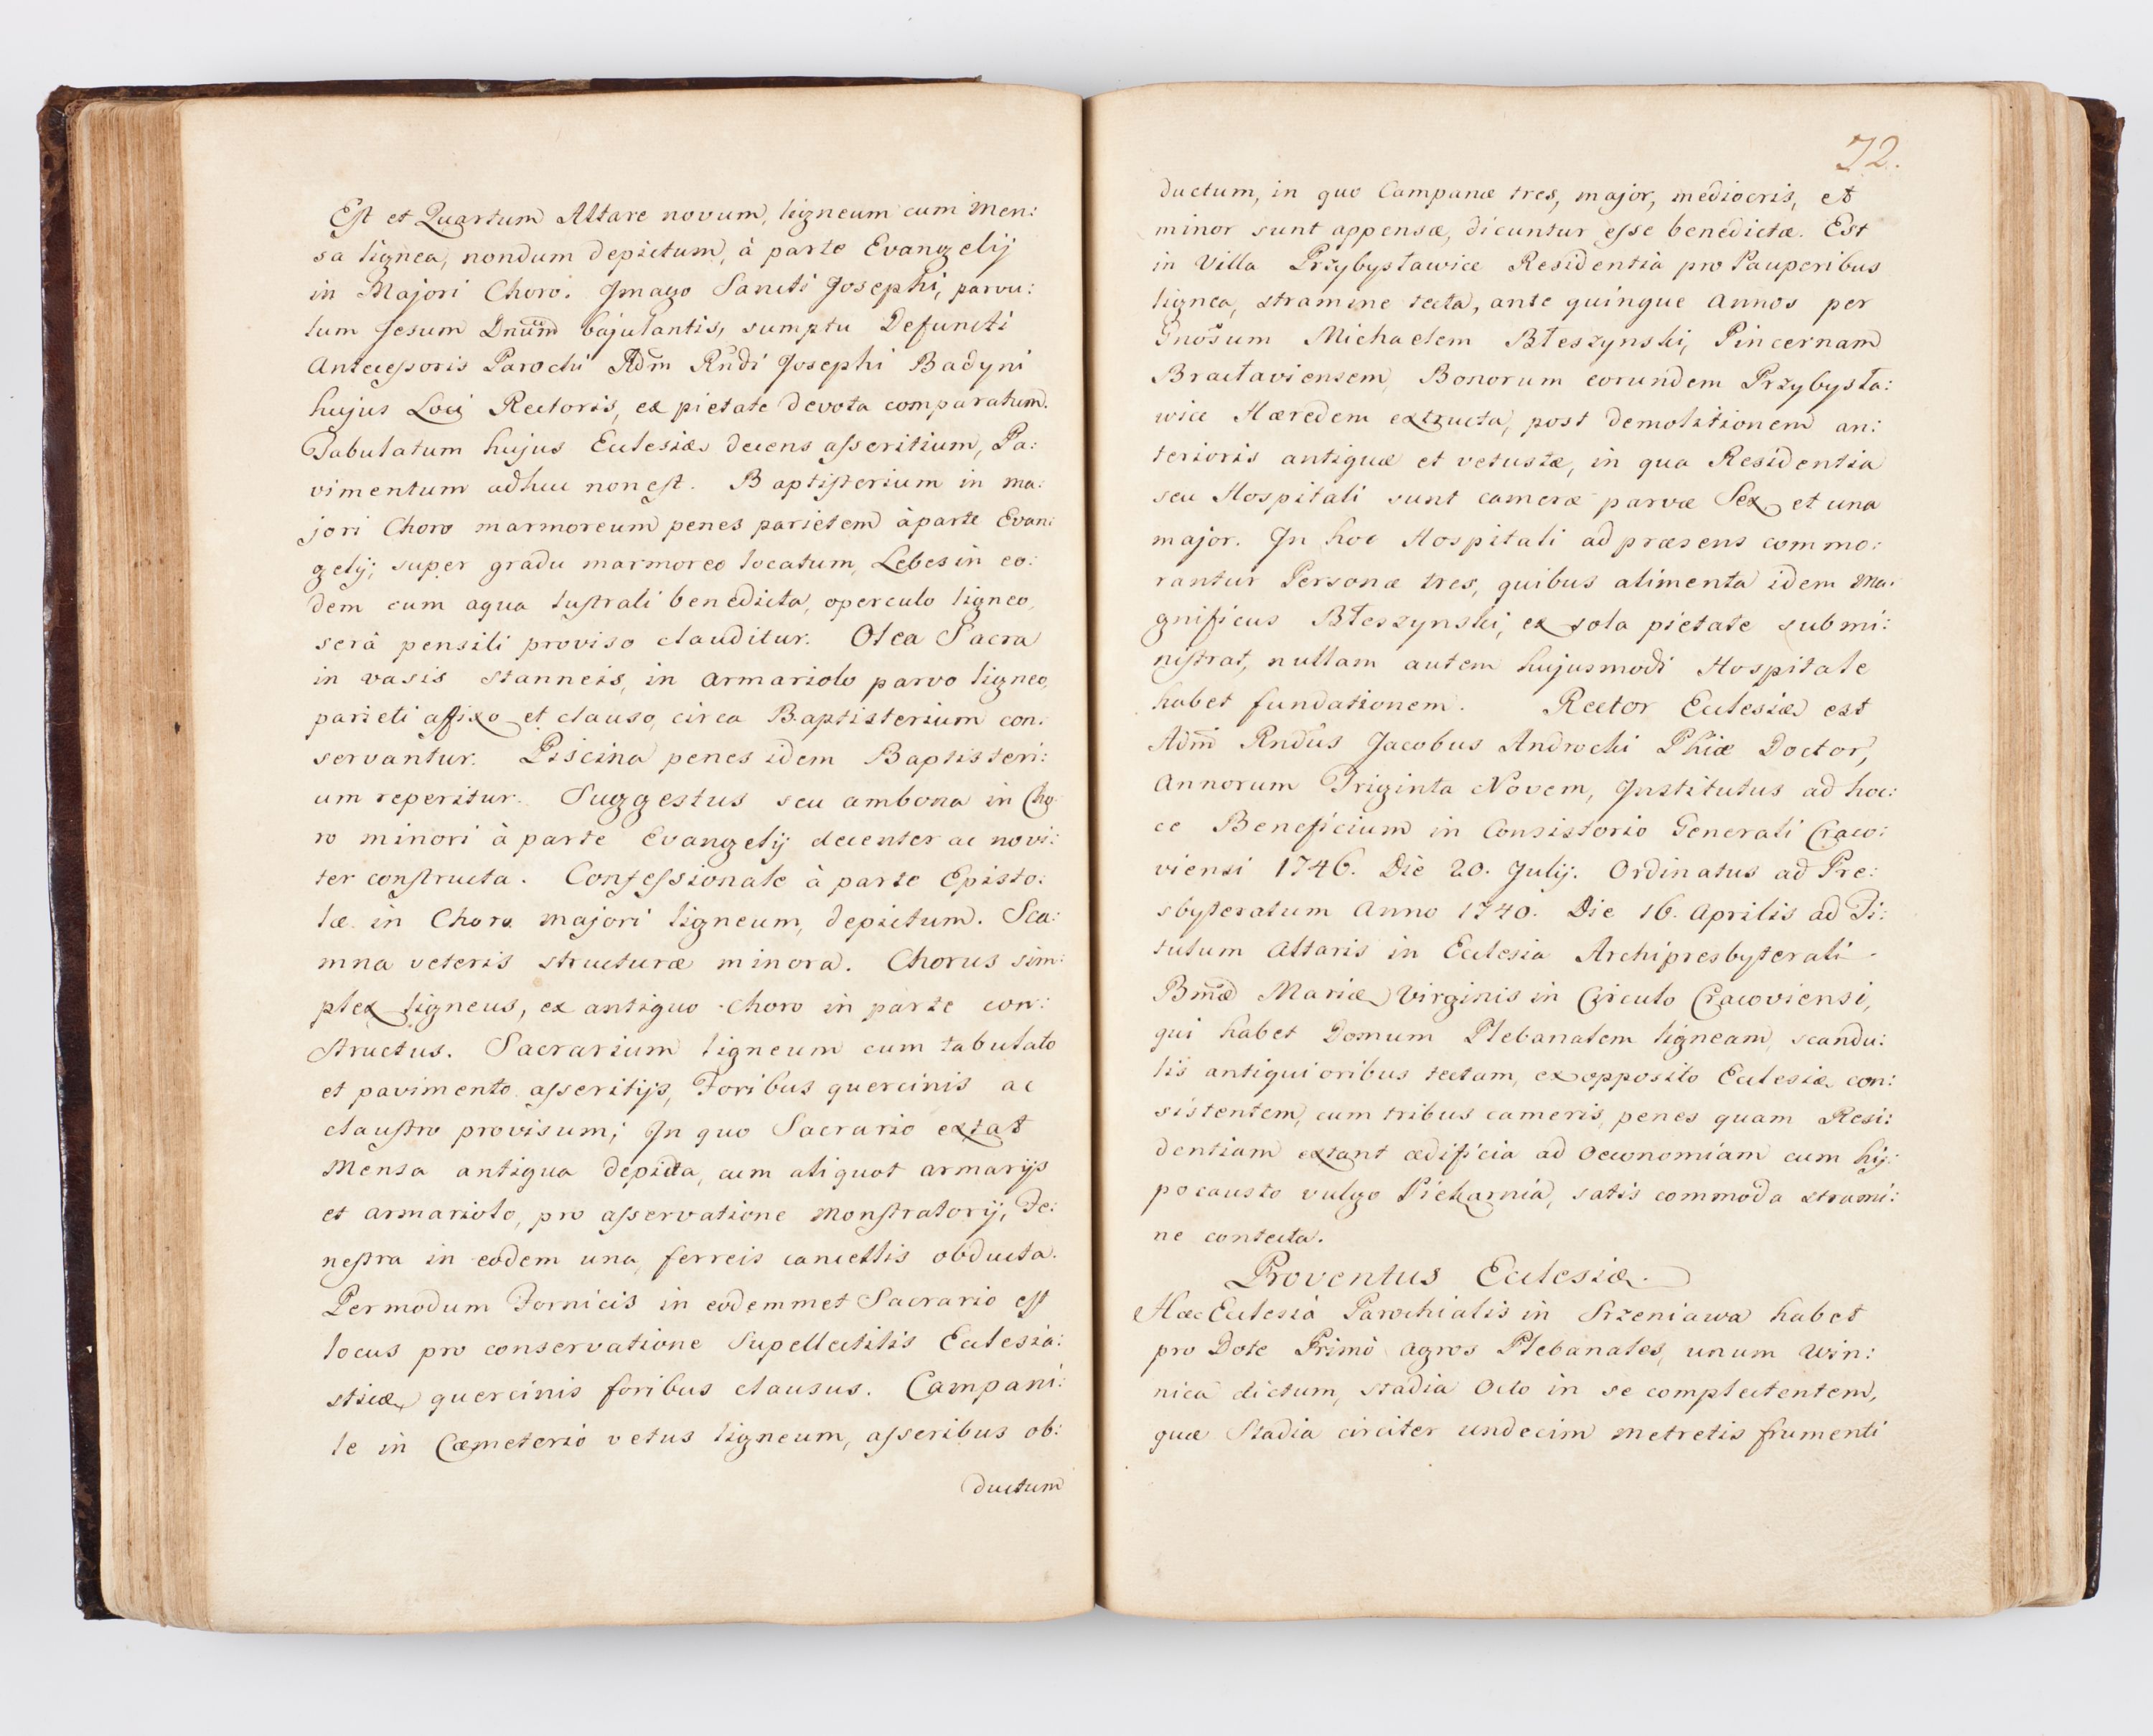 Est et Quartum Altare novum, ligneum cum Men:
sa lignea, nondum depictum, à parte Evangelij
in Majori Choro. Jmago Sancti Josephi, parvu:
lum Jesum Dnum bajulantis, sumptu Defuncti
Antecessoris Parochi Adm Rndi Josephi Badyni
hujus Loci Rectoris, ex pietate devota comparatum.
Tabulatum hujus Ecclesiæ decens asseritium, Pa:
vimentum adhuc non est. Baptisterium in ma:
jori Choro marmoreum penes parietem à parte Evan:
gelij, super gradu marmoreo locatum, Lebes in eo:
dem cum aqua lustrali benedicta, operculo ligneo,
serâ pensili proviso clauditur. Olea Sacra
in vasis stanneis, in armariolo parvo ligneo,
parieti affixo et clauso, circa Baptisterium con:
servantur. Piscina penes idem Baptisteri:
um reperitur. Suggestus seu ambona in Cho:
ro minori à parte Evangelij decenter ac novi:
ter constructa. Confessionale à parte Episto:
læ in Choro majori ligneum, depictum. Sca:
mna veteris structuræ minora. Chorus sim:
plex ligneus, ex antiquo choro in parte con:
structus. Sacrarium ligneum cum tabulato
et pavimento asseritijs, Foribus quercinis ac
claustro provisum; Jn quo Sacrario extat
Mensa antiqua depicta, cum aliquot armarijs
et armariolo, pro asservatione Monstratorij, Fe:
nestra in eodem una, ferreis cancellis obducta.
Per modum Fornicis in eodemmet Sacrario est
locus pro conservatione Supellectilis Ecclesia:
sticæ, quercinis foribus clausus. Campani:
le in Cæmeterio vetus ligneum, asseribus ob:
ductum
72.
ductum, in quo Campanæ tres, major, mediocris, et
minor sunt appensæ, dicuntur esse benedictæ. Est
in Villa Przybysławice Residentia pro Pauperibus
lignea, stramine tecta, ante quinque Annos per
Gnosum Michaelem Błeszynski, Pincernam
Bracłaviensem, Bonorum eorundem Przybysła:
wice Hæredem extructa, post demolitionem an:
terioris antiquæ et vetustæ, in qua Residentia
seu Hospitali sunt cameræ parvæ Sex, et una
major. Jn hoc Hospitali ad præsens commo:
rantur Personæ tres, quibus alimenta idem Ma:
gnificus Błeszynski, ex sola pietate submi:
nistrat, nullam autem hujusmodi Hospitale
habet fundationem. Rector Ecclesiæ est
Adm Rndus Jacobus Androchi Phiæ Doctor,
Annorum Triginta Novem, Jnstitutus ad hoc:
ce Beneficium in Consistorio Generali Craco:
viensi 1746. Die 20. Julij. Ordinatus ad Pre:
sbyteratum Anno 1740. Die 16. Aprilis ad Ti:
tulum Altaris in Ecclesia Archipresbyterali
Bmæ Mariæ Virginis in Circulo Cracoviensi,
qui habet Domum Plebanalem ligneam, scandu:
lis antiquioribus tectam, ex opposito Ecclesiæ con:
sistentem, cum tribus cameris, penes quam Resi:
dentiam extant ædificia ad Oeconomiam cum hy:
pocausto vulgo Piekarnia, satis commoda strami:
ne contecta.
Proventus Ecclesiæ.
Hæc Ecclesia Parochialis in Srzeniawa habet
pro Dote Primò agros Plebanales, unum Win:
nica dictum, stadia Octo in se complectentem,
quæ Stadia circiter undecim metretis frumenti